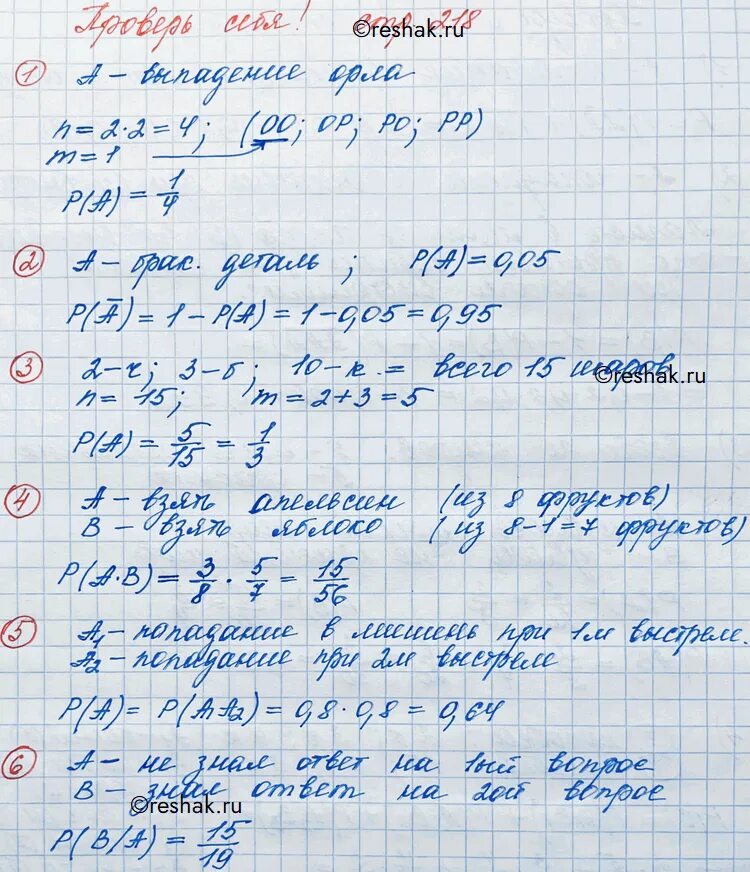 Проверь себя! стр 218
©reshak.ru
1 A – выпадение орла
n = 2·2 = 4; (ОО; ОР; РО; РР)
m = 1
P(A) = 1/4
2 A – брак. деталь; P(A) = 0,05
P(Ā) = 1 – P(A) = 1 – 0,05 = 0,95
3 2 – ч; 3 – б; 10 – к. = всего 15 шаров
©reshak.ru
n = 15; m = 2 + 3 = 5
P(A) = 5/15 = 1/3
4 A – взять апельсин (из 8 фруктов)
B – взять яблоко (из 8 – 1 = 7 фруктов)
P(A·B) = 3/8 · 5/7 = 15/56
5 A₁ – попадание в мишень при 1м выстреле.
A₂ – попадание при 2м выстреле
P(A) = P(A₁A₂) = 0,8 · 0,8 = 0,64
6 A – не знал ответ на 1ый вопрос
B – знал ответ на 2ой вопрос
©reshak.ru
P(B/A) = 15/19